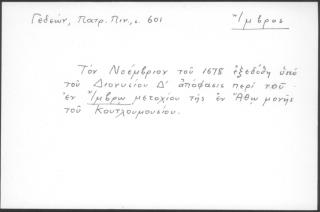 Γεδεών, Πατρ. Πιν., σ. 601
Ἴμβρος
Τὸν Νοέμβριον τοῦ 1678 ἐξεδόθη ὑπὸ
τοῦ Διονυσίου Δ' ἀπόφασις περὶ τοῦ
ἐν Ἴμβρῳ μετοχίου τῆς ἐν Ἄθῳ μονῆς
τοῦ Κουτλουμουσίου.